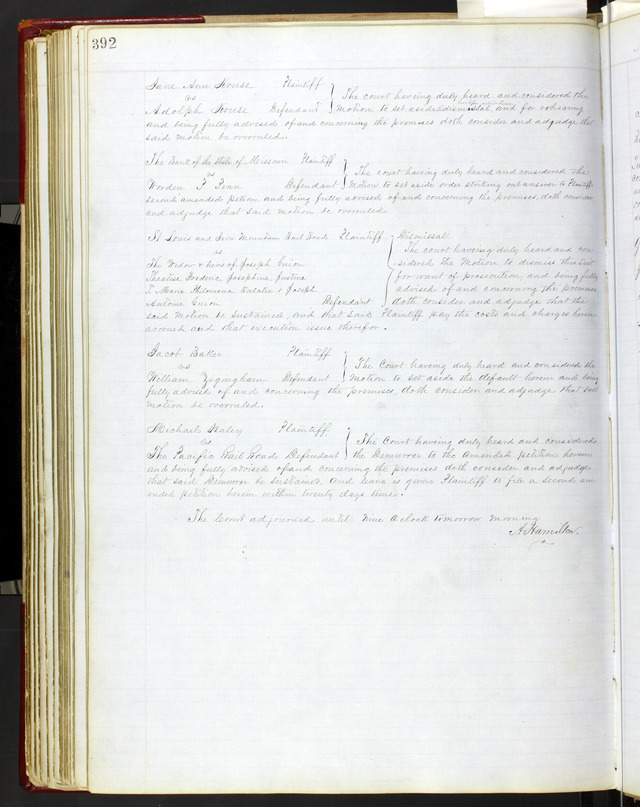 392
Jane Ann House Plaintiff
vs
Adolph House Defendant
The court having duly heard and considered the
motion to set aside dismissal and for rehearing
and being fully advised of and concerning the premises doth consider and adjudge that
said motion be overruled.
The Bank of the State of Missouri Plaintiff
vs
Worden P. Penn Defendant
The court having duly heard and considered the
motion to set aside order striking out answer to Plaintiffs
second amended petition and being fully advised of and concerning the premises, doth consider
and adjudge that said motion be overruled
St Louis and Iron Mountain Rail Road Plaintiff
vs
The Widow & heirs of Joseph
Frederic, Josephine, Justine
Marie Philomena Eulalie & Joseph
Antoine Defendant
Dismissal
The court haveing duly heard and con-
sidered the Motion to dismiss this suit
for want of prosecution, and being fully
advised of and concerning the premises
doth consider and adjudge that the
said motion be sustained, and that said Plaintiff pay the costs and charges herein
accrued and that execution issue therefor.
Jacob Plaintiff
vs
William Defendant
The Court having duly heard and considered the
motion to set aside the default herein and being
fully advised of and concerning the premises, doth consider and adjudge that said
motion be overruled.
Michael Haley Plaintiff
vs
The Pacific Rail Road Defendant
The Court having duly heard and considered
the Demurrer to the Amended petition herein
and being fully advised of and concerning the premises doth consider and adjudge
that said Demurrer be sustained and leave is given Plaintiff to file a second am
ended petition herein within twenty days time.
The Court adjourned until Nine O clock tomorrow morning
A. Hamilton.